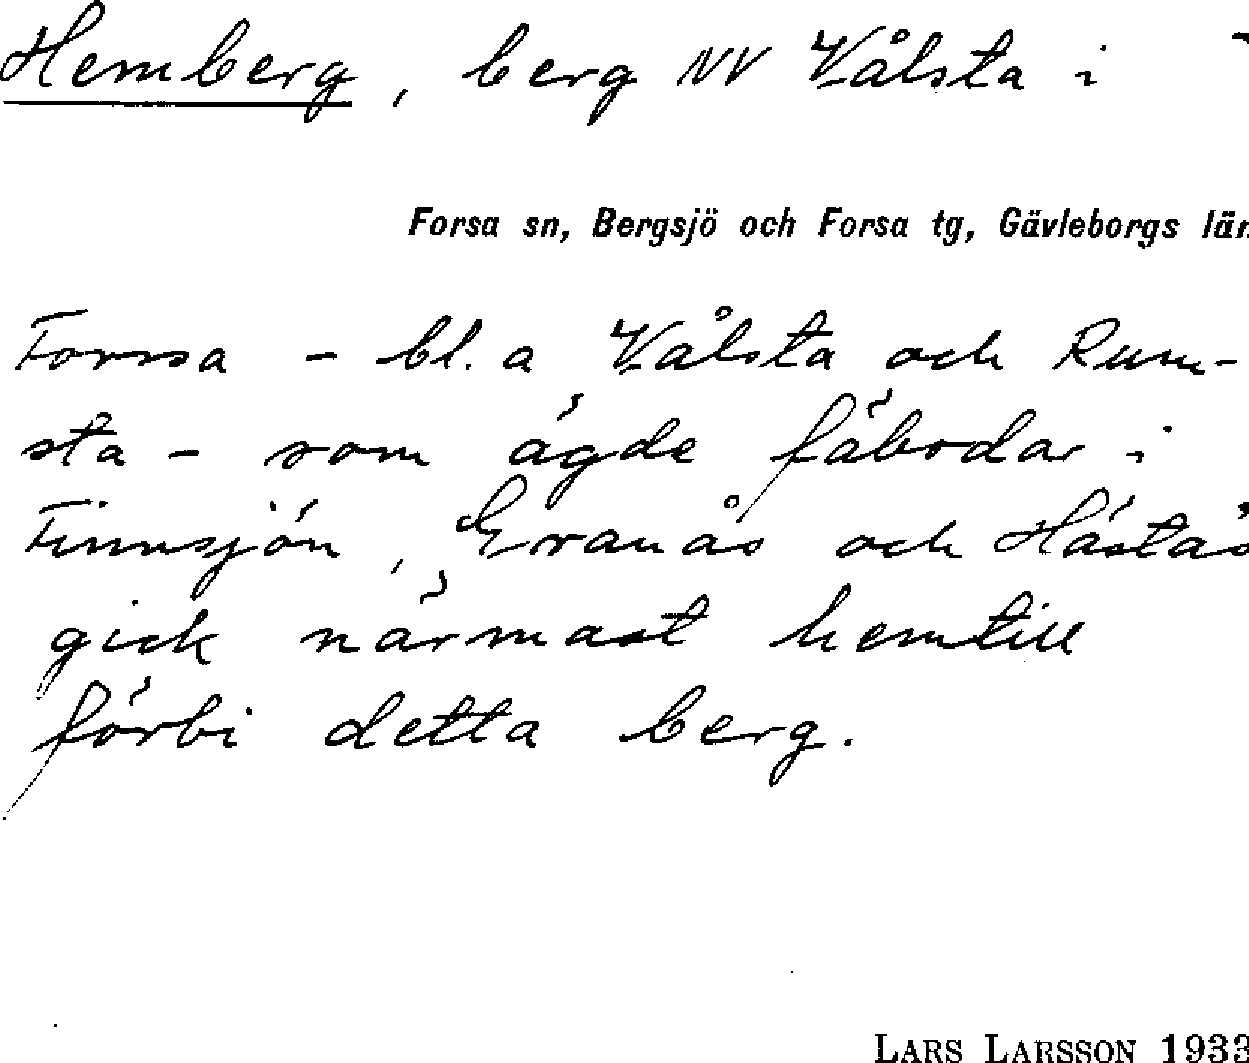 Hemberg, berg NV Vålsta i
Forsa sn, Bergsjö och Forsa tg, Gävleborgs län
Forssa - bl. a Vålsta och Rum-
sta - som ägde fäbodar i
Finnsjön, Granås och Hästås
gick närmast hemtill
förbi detta berg.
LARS LARSSON 1933